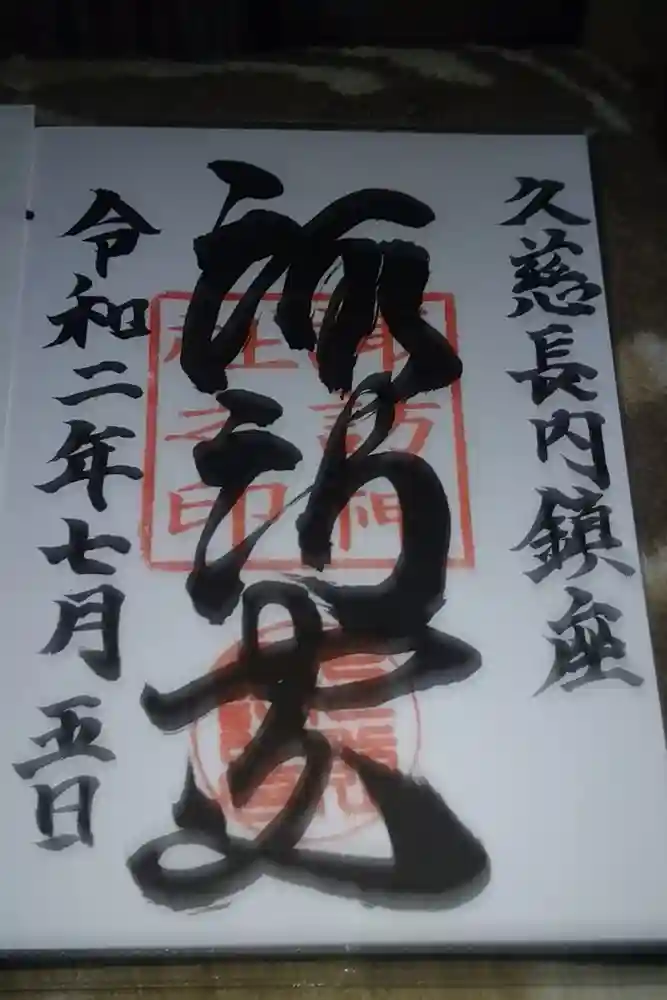 久慈長内鎮座
諏訪
諏訪神
社之印
令和二年七月五日